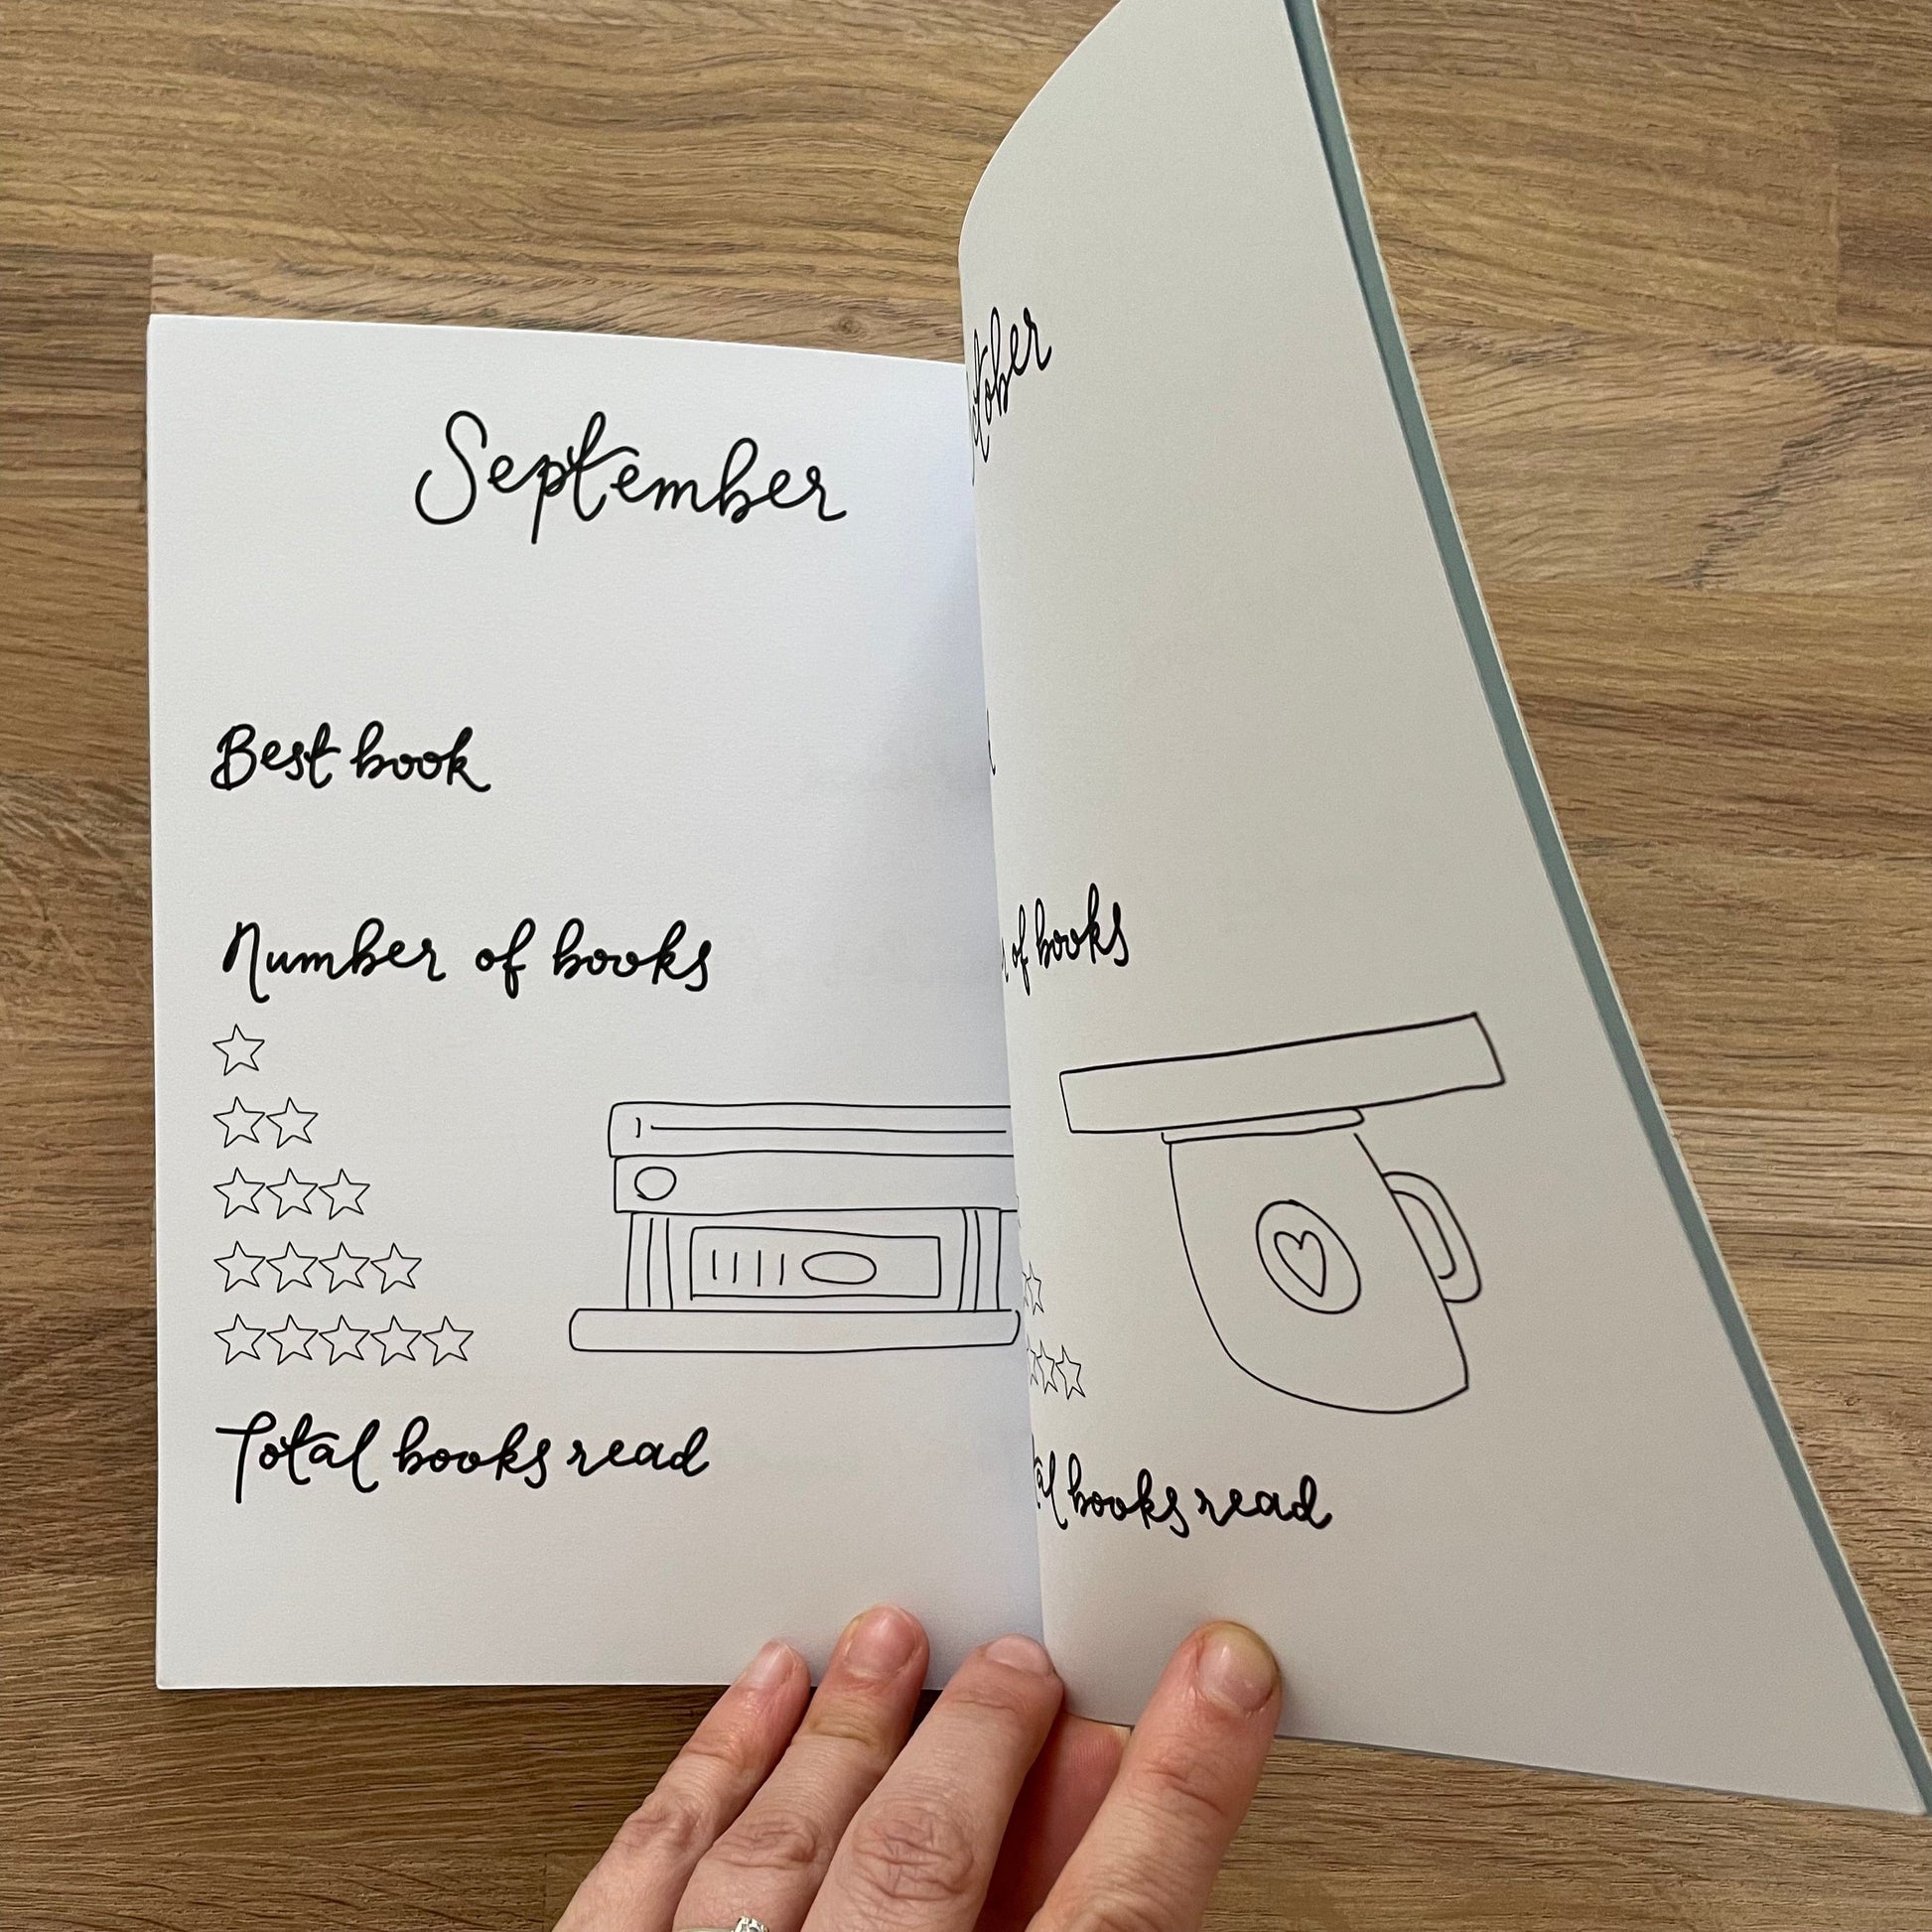 September
Best book
Number of books
Total books read
of books
books read